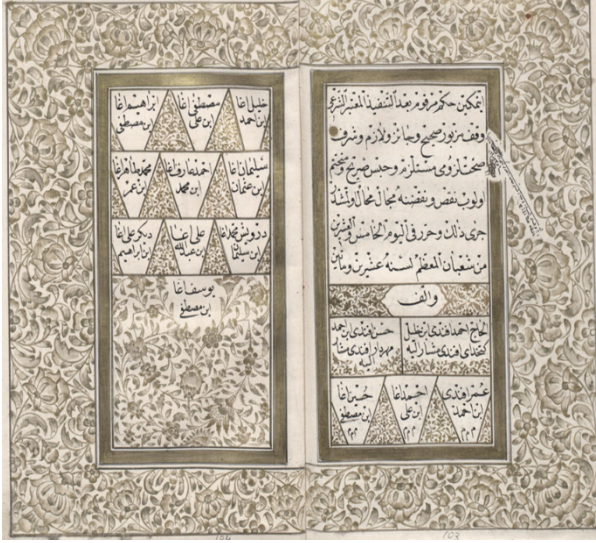 يتمكين حكم مرقوم بعد التنفيذ المعتبر الشرعى
وقف مزبور صحيح وجائز ولازم وشرف
صحتله لزومى مستلزم وحبس صريح متختم
اولوب نقص ونقضنه مجال محال
جرى ذلك وحرر فى اليوم الخامس والعشرين
من شعبان المعظم لسنة عشرين ومأتين
والف
الحاج احمد افندى بن خليل
كتخداى افندى مشار اليه
حسن افندى بن احمد
مهردار افندى مشار اليه
عمر افندى
ابن احمد
احمد اغا
ابن على
حسين اغا
ابن مصطفى
م م م
خليل اغا
ابن احمد
مصطفى اغا
ابن على
ابراهيم اغا
ابن مصطفى
سليمان اغا
ابن عثمان
احمد عارف اغا
ابن محمد
محمد طاهر اغا
ابن عمر
درويش محمد اغا
ابن سليمان
على اغا
ابن عبد الله
ديكر على اغا
ابن ابراهيم
يوسف اغا
ابن مصطفى
104
103